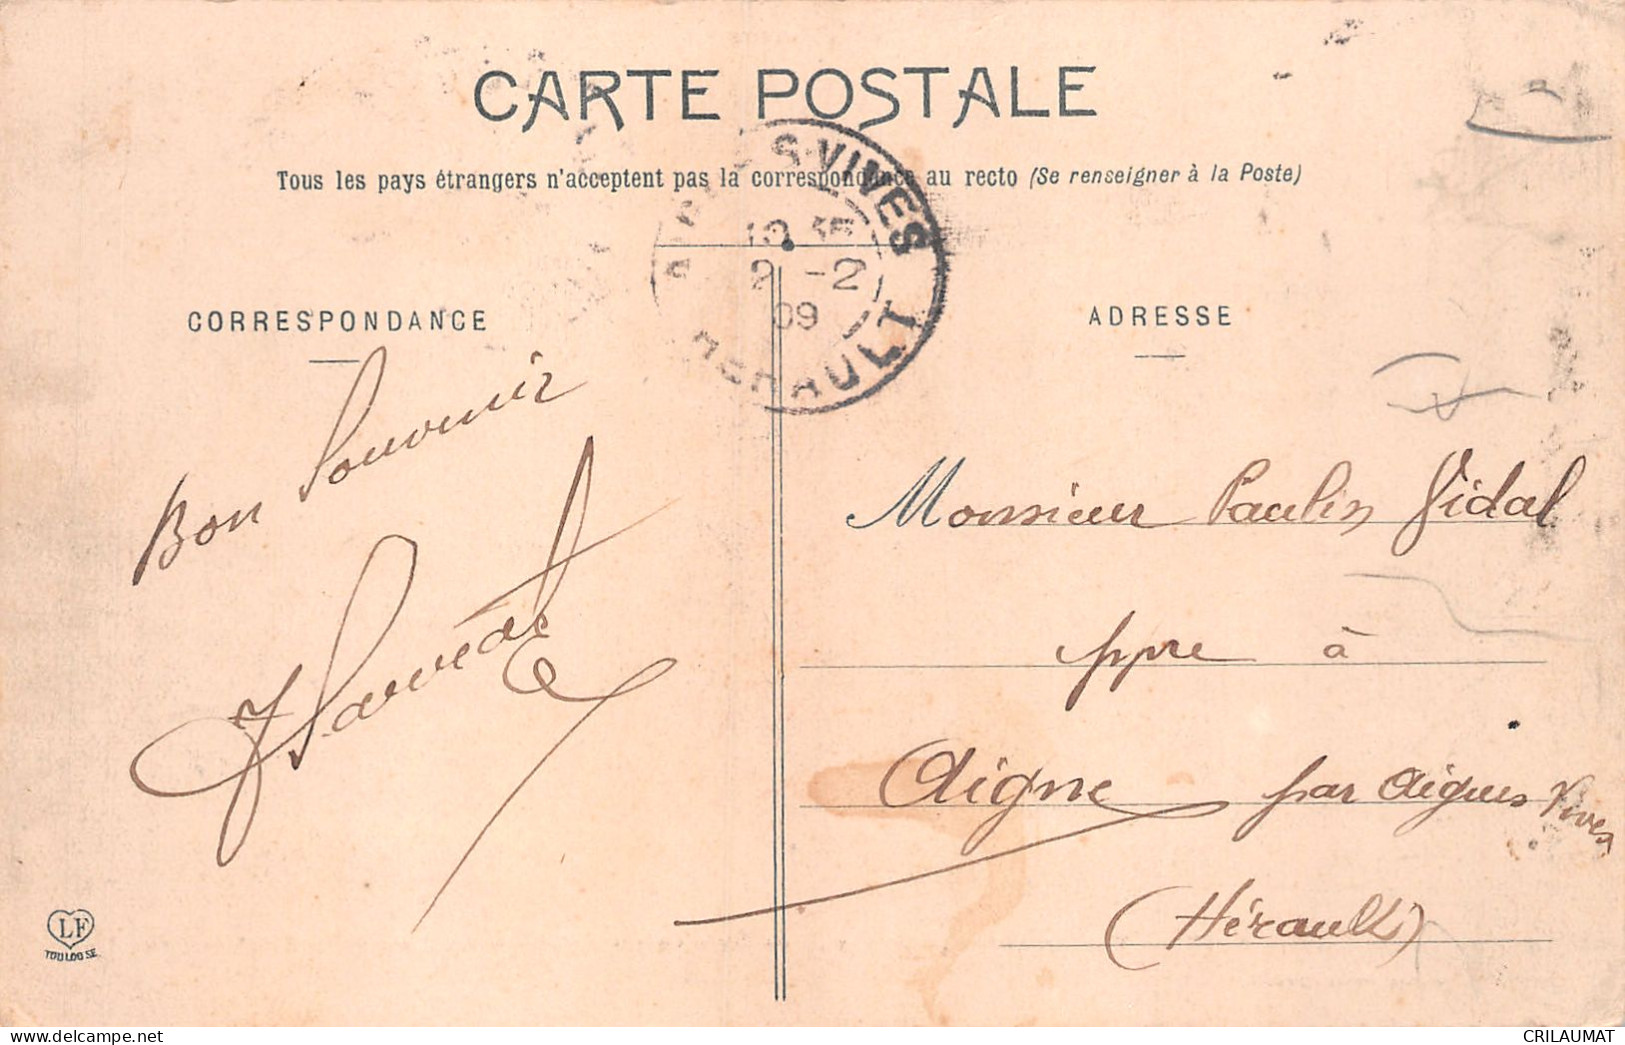 CARTE POSTALE
Tous les pays étrangers n'acceptent pas la correspondance au recto (Se renseigner à la Poste)
S-VIVES
2 -2
09
HERAULT
CORRESPONDANCE
ADRESSE
Bon Souvenir
Monsieur Paulin Vidal
ppre à
Aigne par Aigues Vives
(Hérault)
LF
TOULOUSE
delcampe.net
CRILAUMAT